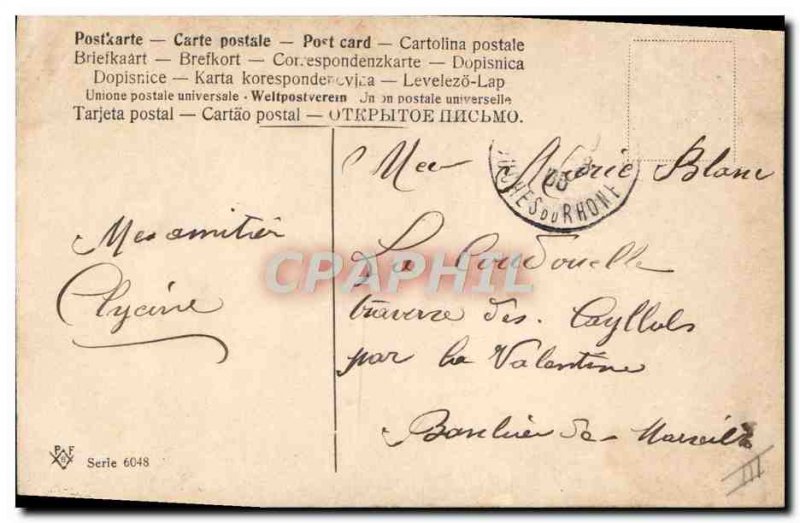 Postkarte — Carte postale — Post card — Cartolina postale
Briefkaart — Brefkort — Correspondenzkarte — Dopisnica
Dopisnice — Karta korespondencyjna — Levelező-Lap
Unione postale universale - Weltpostverein Union postale universelle
Tarjeta postal — Cartão postal — ОТКРЫТОЕ ПИСЬМО.
BOUCHES DU RHONE
Marie Blanc
Mes amitiés
La
traverse des Cayllols
par la Valentine
Banlieue de Marseille
CPAPHIL
P F
Serie 6048
III